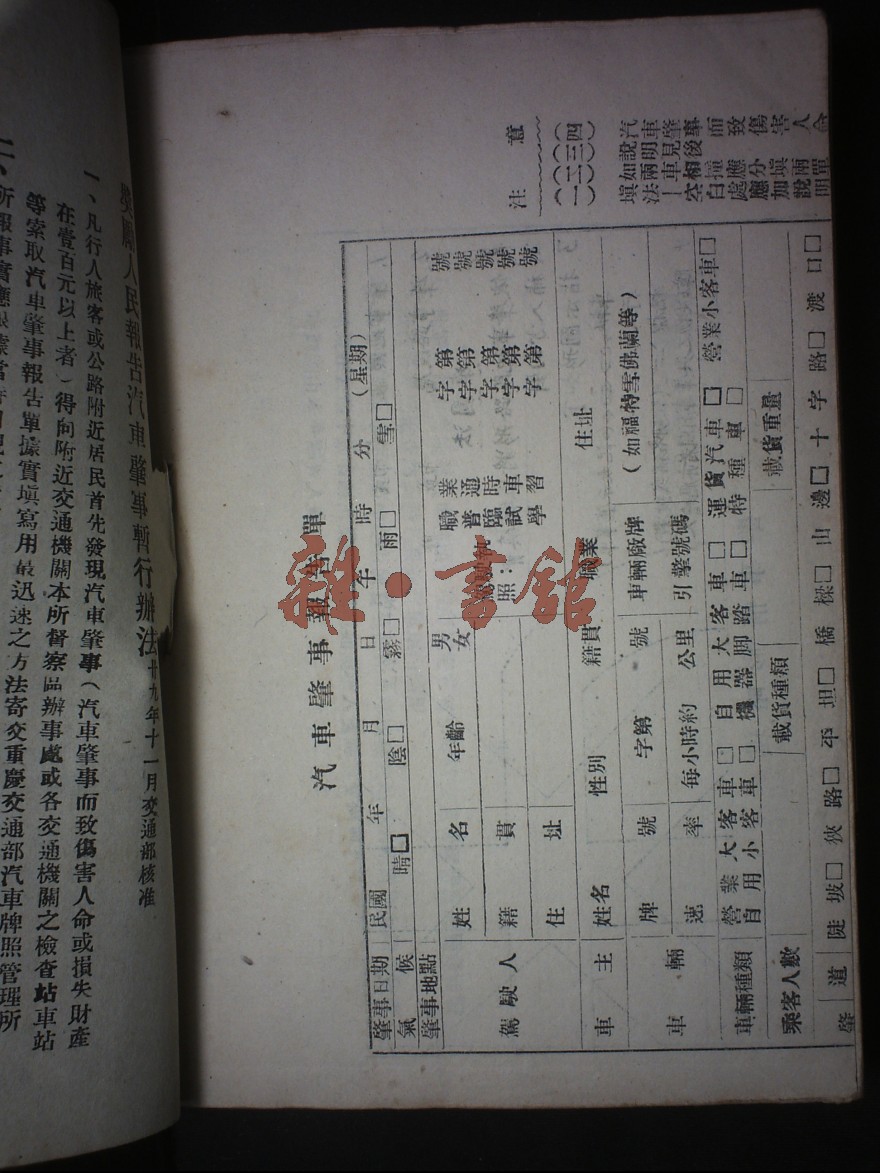 獎勵人民報告汽車肇事暫行辦法 廿九年十一月交通部核准
一、凡行人旅客或公路附近居民首先發現汽車肇事（汽車肇事而致傷害人命或損失財產
在壹百元以上者）得向附近交通機關本所督察區辦事處或各交通機關之檢查站車站
等索取汽車肇事報告單據實填寫用最迅速之方法寄交重慶交通部汽車牌照管理所
汽車肇事報告單
肇事日期 民國 年 月 日 午 時 分（星期 ）
氣候 晴□ 陰□ 霧□ 雨□ 雪□
肇事地點
駕駛人 姓名 年齡 男女
籍貫
住址
照：
職業 字第 號
普通 字第 號
臨時 字第 號
試車 字第 號
學習 字第 號
車主 姓名 性別 籍貫 職業 住址
車輛 牌號 字第 號 車輛廠牌 （如福特雪佛蘭等）
速率 每小時約 公里 引擎號碼
車輛種類 營業大客車□ 自用大客車□ 運貨汽車□ 營業小客車□
自用小客車□ 機器脚踏車□ 特種車□
乘客人數 載貨種類 載貨重量
肇
道 陡坡□ 狹路□ 平坦□ 橋樑□ 山邊□ 十字路□ 渡口□
注意
（一）（二）（三）（四）
雜·書舘